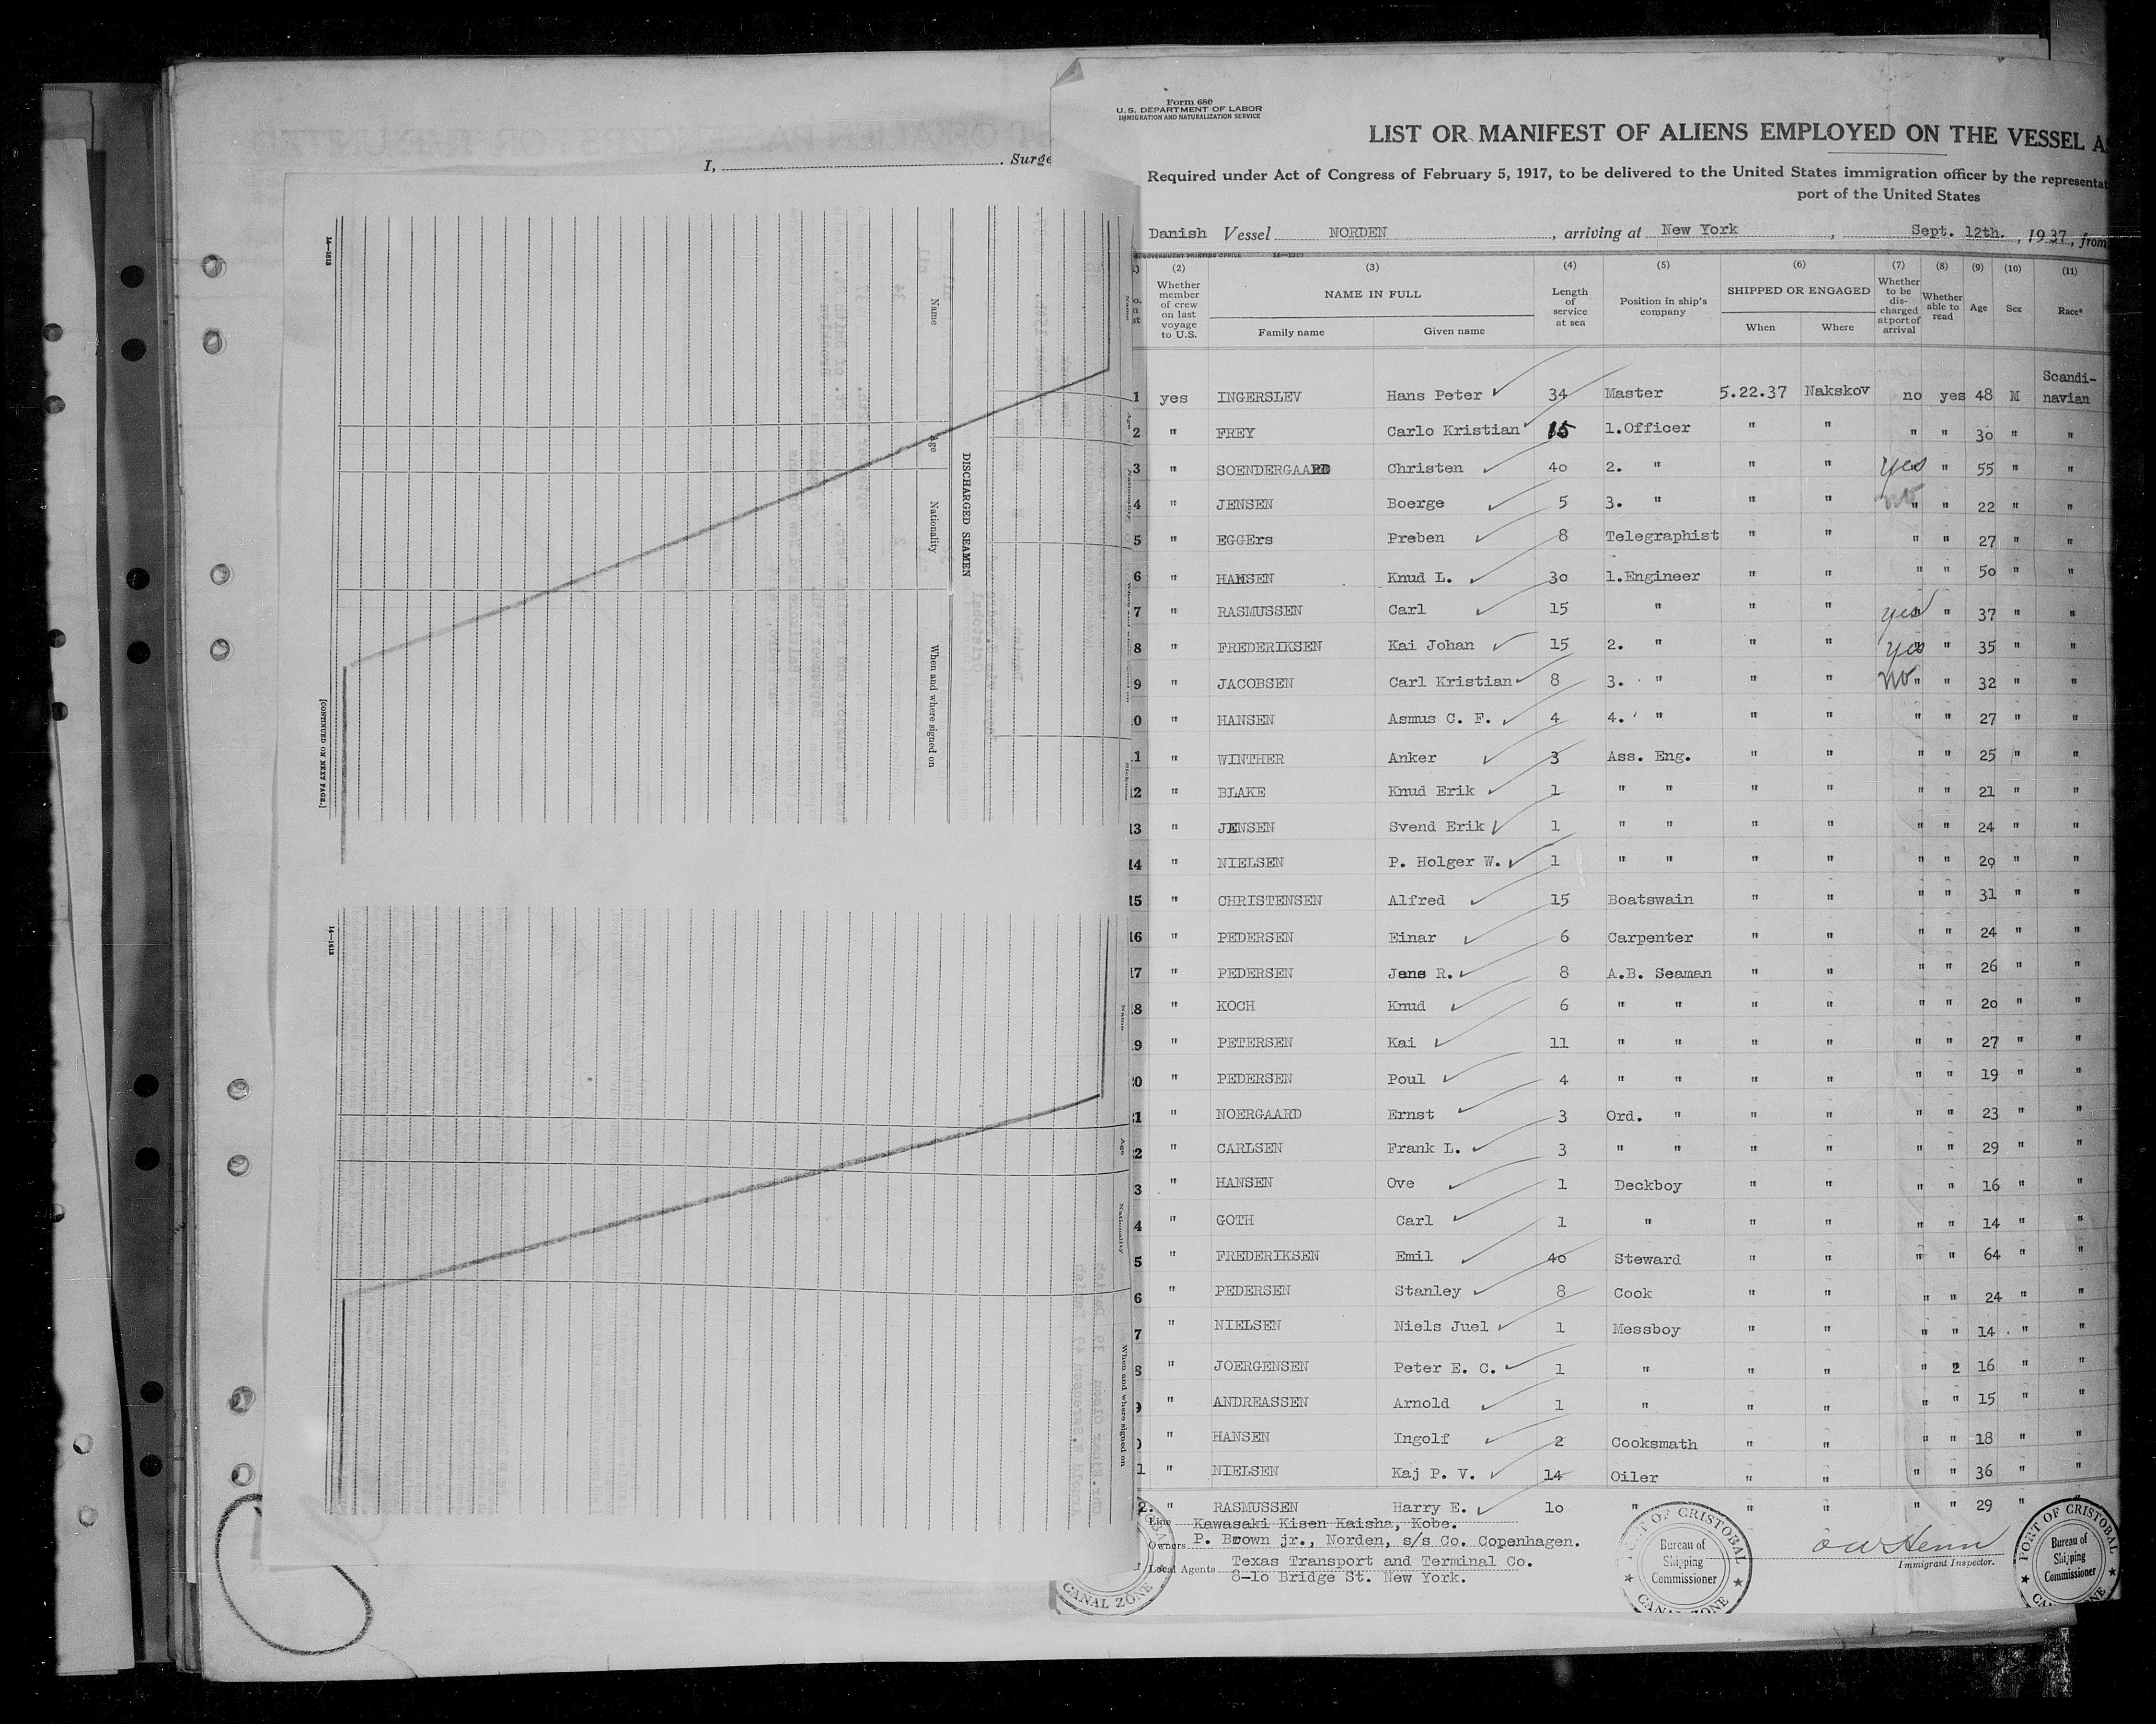 I, . Surge
14—1613
[CONTINUED ON NEXT PAGE.]
DISCHARGED SEAMEN
Name Age Nationality When and where signed on
14—1613
Name Age Nationality When and where signed on
Form 680
U. S. DEPARTMENT OF LABOR
IMMIGRATION AND NATURALIZATION SERVICE
LIST OR MANIFEST OF ALIENS EMPLOYED ON THE VESSEL AS
Required under Act of Congress of February 5, 1917, to be delivered to the United States immigration officer by the representat
port of the United States
Danish Vessel NORDEN , arriving at New York , Sept. 12th. , 1937, from
(2) (3) (4) (5) (6) (7) (8) (9) (10) (11)
Whether member of crew on last voyage to U.S. NAME IN FULL Length of service at sea Position in ship's company SHIPPED OR ENGAGED Whether to be discharged at port of arrival Whether able to read Age Sex Race*
Family name Given name When Where
1 yes INGERSLEV Hans Peter 34 Master 5.22.37 Nakskov no yes 48 M Scandi-navian
2 " FREY Carlo Kristian 15 1.Officer " " " " 30 " "
3 " SOENDERGAARD Christen 40 2. " " " yes " 55 " "
4 " JENSEN Boerge 5 3. " " " no " " 22 " "
5 " EGGErs Preben 8 Telegraphist " " " " 27 " "
6 " HANSEN Knud L. 30 1.Engineer " " " " 50 " "
7 " RASMUSSEN Carl 15 " " " yes " 37 " "
8 " FREDERIKSEN Kai Johan 15 2. " " " yes " 35 " "
9 " JACOBSEN Carl Kristian 8 3. " " " no " " 32 " "
0 " HANSEN Asmus C. F. 4 4. " " " " " 27 " "
1 " WINTHER Anker 3 Ass. Eng. " " " " 25 " "
2 " BLAKE Knud Erik 1 " " " " " " 21 " "
13 " JENSEN Svend Erik 1 " " " " " " 24 " "
14 " NIELSEN P. Holger W. 1 " " " " " " 29 " "
15 " CHRISTENSEN Alfred 15 Boatswain " " " " 31 " "
16 " PEDERSEN Einar 6 Carpenter " " " " 24 " "
17 " PEDERSEN Jens R. 8 A.B. Seaman " " " " 26 " "
18 " KOCH Knud 6 " " " " " " 20 " "
9 " PETERSEN Kai 11 " " " " " " 27 " "
0 " PEDERSEN Poul 4 " " " " " " 19 " "
1 " NOERGAARD Ernst 3 Ord. " " " " " 23 " "
2 " CARLSEN Frank L. 3 " " " " " " 29 " "
3 " HANSEN Ove 1 Deckboy " " " " 16 " "
4 " GOTH Carl 1 " " " " " 14 " "
5 " FREDERIKSEN Emil 40 Steward " " " " 64 " "
6 " PEDERSEN Stanley 8 Cook " " " " 24 " "
7 " NIELSEN Niels Juel 1 Messboy " " " " 14 " "
8 " JOERGENSEN Peter E. C. 1 " " " " 2 16 " "
9 " ANDREASSEN Arnold 1 " " " " " 15 " "
0 " HANSEN Ingolf 2 Cooksmath " " " " 18 " "
1 " NIELSEN Kaj P. V. 14 Oiler " " " " 36 " "
2. " RASMUSSEN Harry E. 10 " " " " " 29 " "
Line Kawasaki Kisen Kaisha, Kobe.
Owners P. Brown jr., Norden, s/s Co. Copenhagen.
Local Agents Texas Transport and Terminal Co.
8-10 Bridge St. New York.
Immigrant Inspector.
PORT OF CRISTOBAL
Bureau of
Shipping
Commissioner
CANAL ZONE
PORT OF CRISTOBAL
Bureau of
Shipping
Commissioner
CANAL ZONE